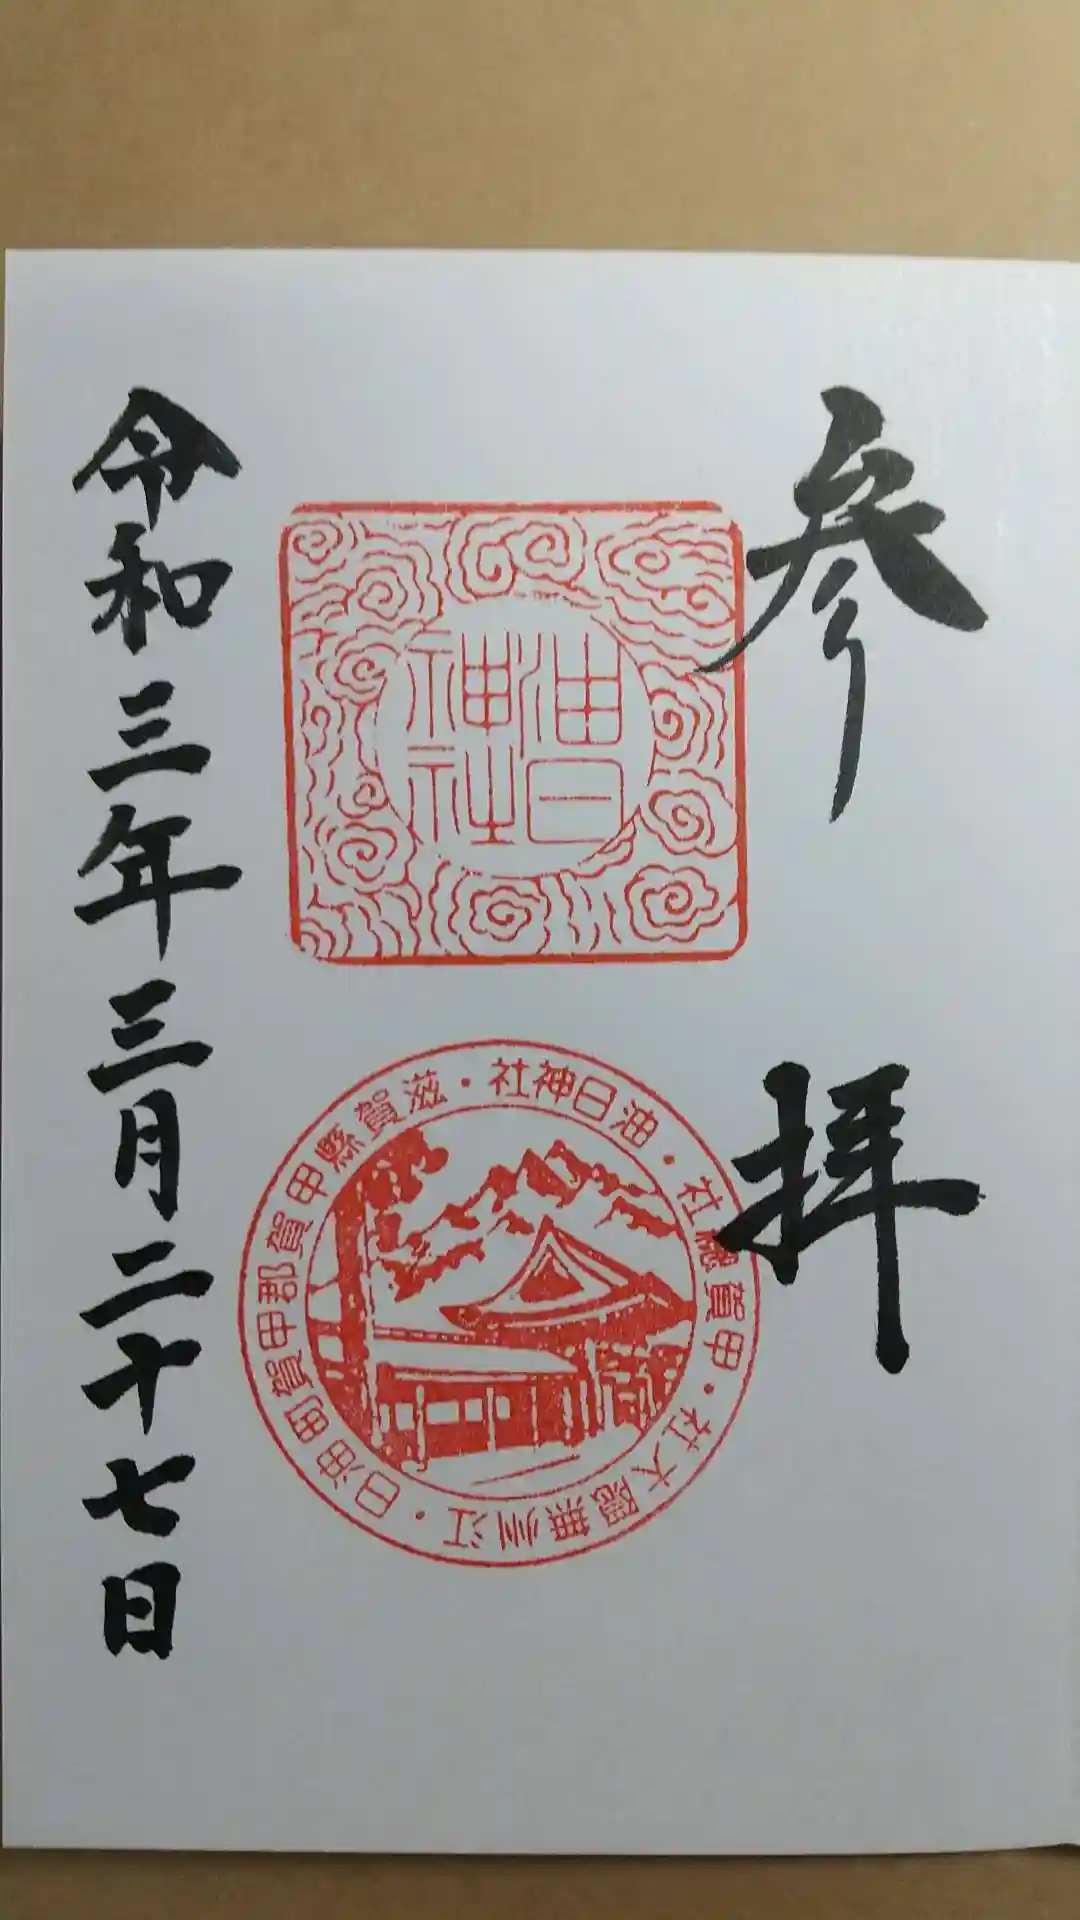 参拝
油日神社
油日神社・滋賀縣甲賀郡甲賀町油日・江州無隠大社・甲賀總社・
令和三年三月二十七日